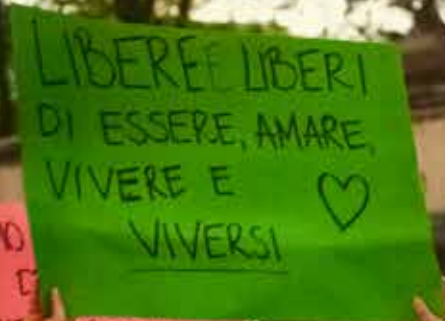 LIBERE E LIBERI
DI ESSERE, AMARE,
VIVERE E
VIVERSI